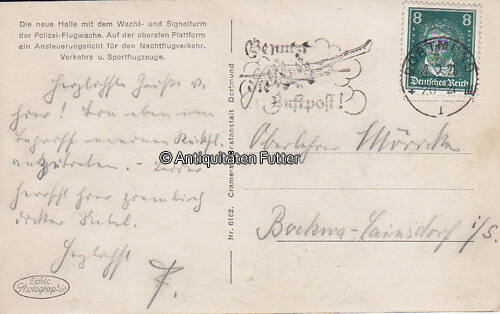 Die neue Halle mit dem Wacht- und Signalturm
der Polizei-Flugwache. Auf der obersten Plattform
ein Ansteuerungslicht für den Nachtflugverkehr.
Verkehrs u. Sportflugzeuge.
Herzlichste Grüße v.
hier! Bin eben im
Begriff meinen
anzutreten. — Leider
herrscht hier ziemlich
dicker Nebel.
Herzlichst
F.
Echte
Photographie
Nr. 6162. Cramers Dortmund
Benutzt
die
Luftpost!
8 8
Deutsches Reich
DORTMUND
1
Oberlehrer Mörricke
Bockwa-Cainsdorf i/S.
© Antiquitäten Futter